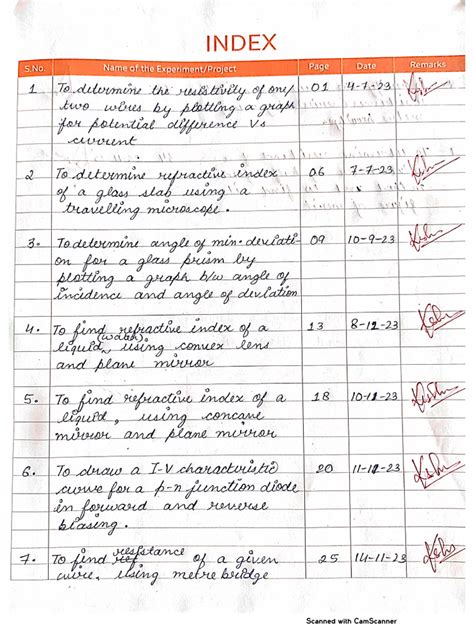 INDEX
S.No. Name of the Experiment/Project Page Date Remarks
1 To determine the resistivity of one/ 01 4-7-23
two wires by plotting a graph
for potential difference Vs
current
2 To determine refractive index 06 7-7-23
of a glass slab using a
travelling microscope.
3. To determine angle of min. deviati- 09 10-9-23
on for a glass prism by
plotting a graph b/w angle of
incidence and angle of deviation
4. To find refractive index of a 13 8-12-23
liquid (water), using convex lens
and plane mirror
5. To find refractive index of a 18 10-11-23
liquid, using concave
mirror and plane mirror
6. To draw a I-V characteristic 20 11-12-23
curve for a p-n junction diode
in forward and reverse
biasing.
7. To find resistance of a given 25 14-11-23
wire, using metre bridge
Scanned with CamScanner